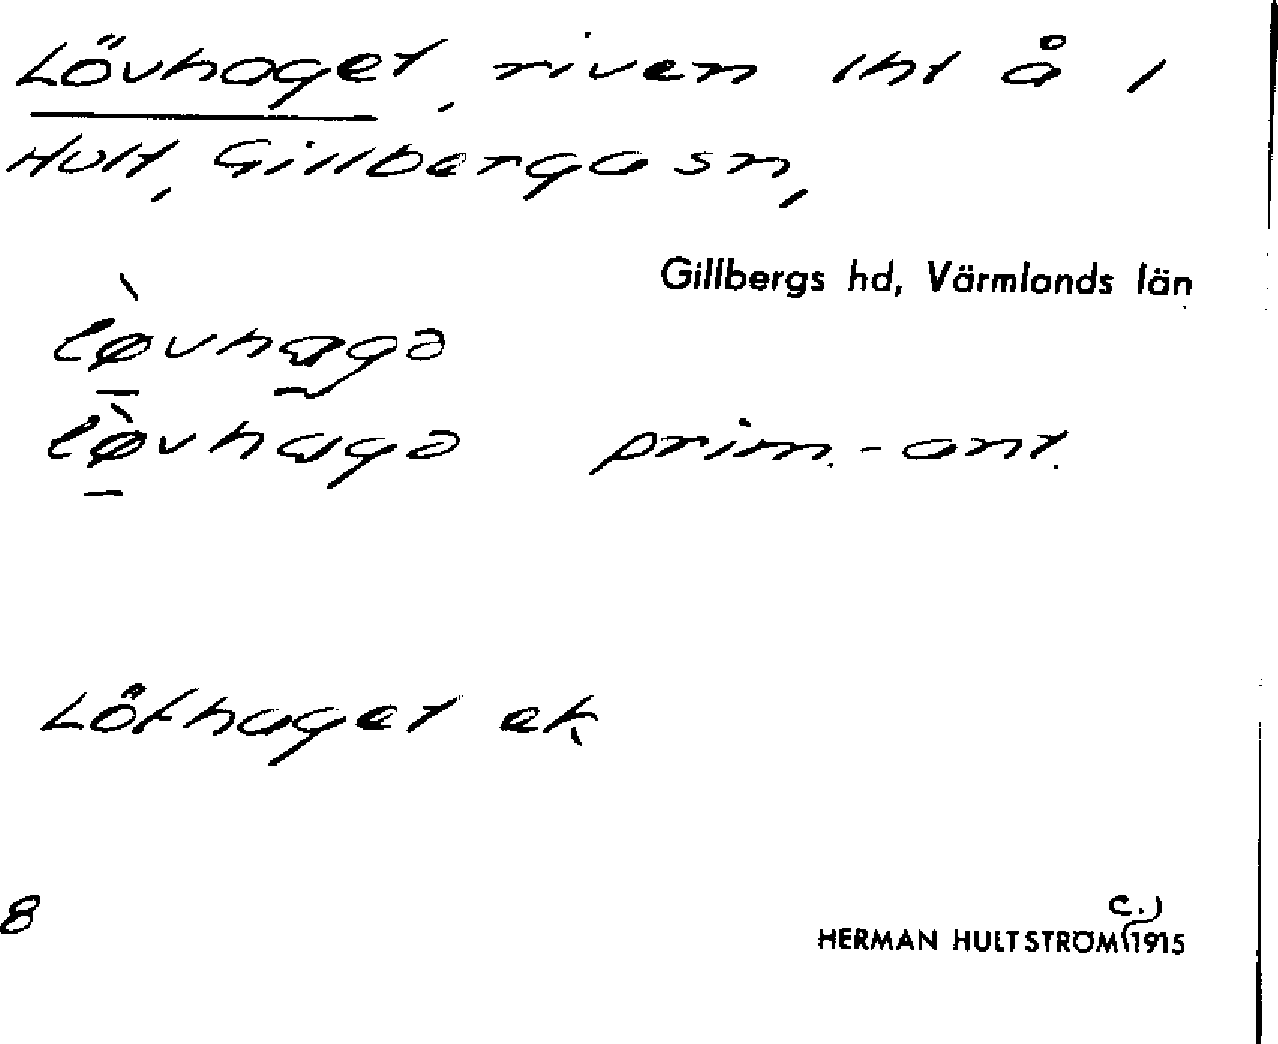 Lövhaget, riven lht å i
Hult, Gillberga sn,
Gillbergs hd, Värmlands län
lø̀vhagə
lø̀vhagə prim.-ant.
Löfhaget ek
8
c.)
HERMAN HULTSTRÖM 1915